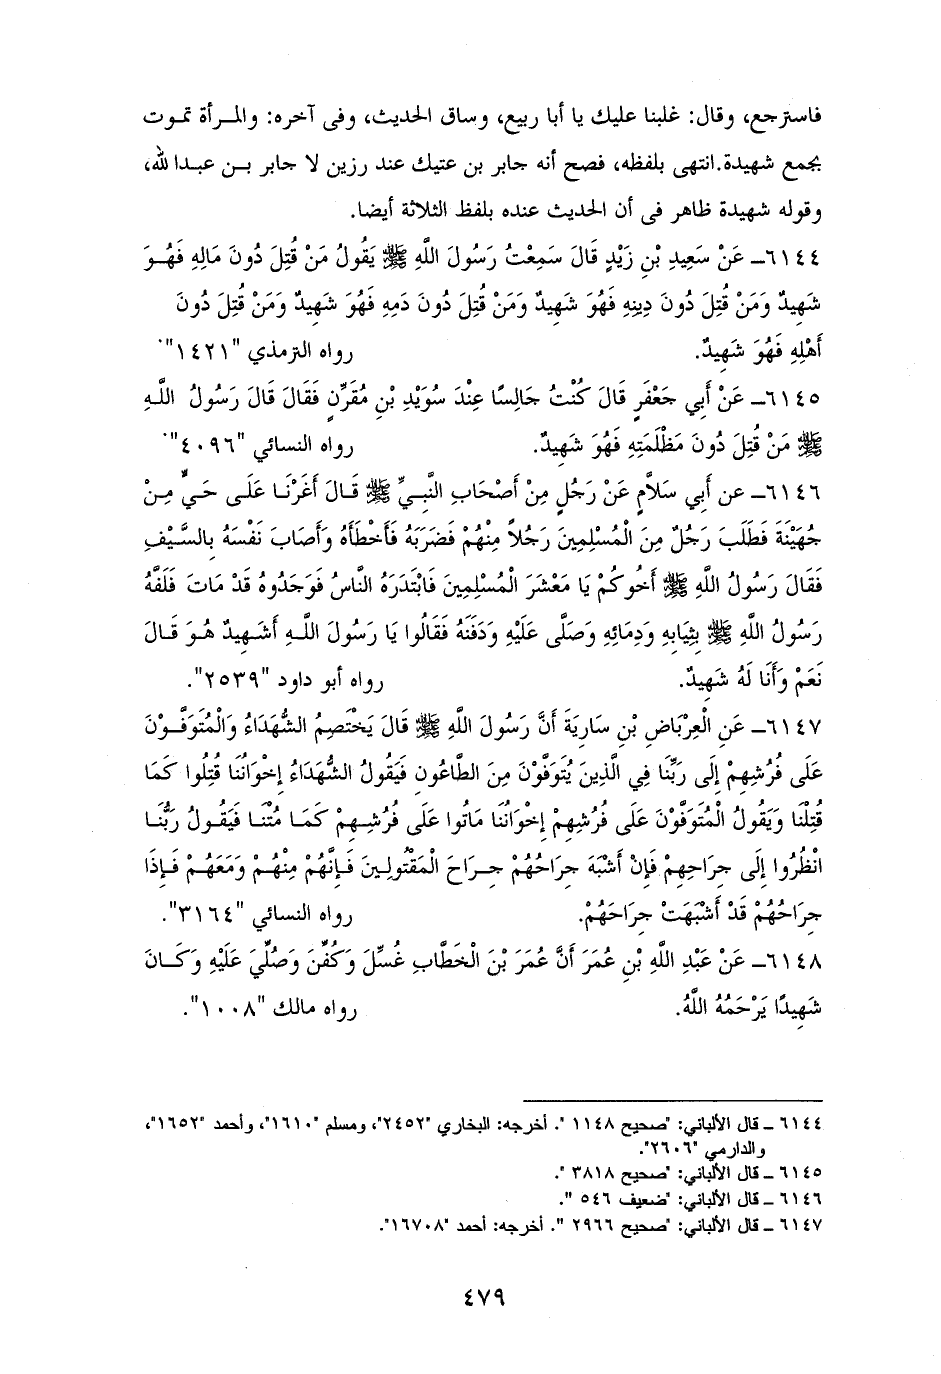 فاسترجع، وقال: غلبنا عليك يا أبا ربيع، وساق الحديث، وفى آخره: والمرأة تموت
بجمع شهيدة.انتهى بلفظه، فصح أنه جابر بن عتيك عند رزين لا جابر بن عبدالله،
وقوله شهيدة ظاهر فى أن الحديث عنده بلفظ الثلاثة أيضا.
٦١٤٤ــ عَنْ سَعِيدِ بْنِ زَيْدٍ قَالَ سَمِعْتُ رَسُولَ اللَّهِ ﷺ يَقُولُ مَنْ قُتِلَ دُونَ مَالِهِ فَهُوَ
شَهِيدٌ وَمَنْ قُتِلَ دُونَ دِينِهِ فَهُوَ شَهِيدٌ وَمَنْ قُتِلَ دُونَ دَمِهِ فَهُوَ شَهِيدٌ وَمَنْ قُتِلَ دُونَ
أَهْلِهِ فَهُوَ شَهِيدٌ. رواه الترمذي "١٤٢١".
٦١٤٥ــ عَنْ أَبِي جَعْفَرٍ قَالَ كُنْتُ جَالِسًا عِنْدَ سُوَيْدِ بْنِ مُقَرِّنٍ فَقَالَ قَالَ رَسُولُ اللَّهِ
ﷺ مَنْ قُتِلَ دُونَ مَظْلَمَتِهِ فَهُوَ شَهِيدٌ. رواه النسائي "٤٠٩٦".
٦١٤٦ــ عن أَبِي سَلاَّمٍ عَنْ رَجُلٍ مِنْ أَصْحَابِ النَّبِيِّ ﷺ قَالَ أَغَرْنَا عَلَى حَيٍّ مِنْ
جُهَيْنَةَ فَطَلَبَ رَجُلٌ مِنَ الْمُسْلِمِينَ رَجُلاً مِنْهُمْ فَضَرَبَهُ فَأَخْطَأَهُ وَأَصَابَ نَفْسَهُ بِالسَّيْفِ
فَقَالَ رَسُولُ اللَّهِ ﷺ أَخُوكُمْ يَا مَعْشَرَ الْمُسْلِمِينَ فَابْتَدَرَهُ النَّاسُ فَوَجَدُوهُ قَدْ مَاتَ فَلَفَّهُ
رَسُولُ اللَّهِ ﷺ بِثِيَابِهِ وَدِمَائِهِ وَصَلَّى عَلَيْهِ وَدَفَنَهُ فَقَالُوا يَا رَسُولَ اللَّهِ أَشَهِيدٌ هُوَ قَالَ
نَعَمْ وَأَنَا لَهُ شَهِيدٌ. رواه أبو داود "٢٥٣٩".
٦١٤٧ــ عَنِ الْعِرْبَاضِ بْنِ سَارِيَةَ أَنَّ رَسُولَ اللَّهِ ﷺ قَالَ يَخْتَصِمُ الشُّهَدَاءُ وَالْمُتَوَفَّوْنَ
عَلَى فُرُشِهِمْ إِلَى رَبِّنَا فِي الَّذِينَ يُتَوَفَّوْنَ مِنَ الطَّاعُونِ فَيَقُولُ الشُّهَدَاءُ إِخْوَانُنَا قُتِلُوا كَمَا
قُتِلْنَا وَيَقُولُ الْمُتَوَفَّوْنَ عَلَى فُرُشِهِمْ إِخْوَانُنَا مَاتُوا عَلَى فُرُشِهِمْ كَمَا مُتْنَا فَيَقُولُ رَبُّنَا
انْظُرُوا إِلَى جِرَاحِهِمْ فَإِنْ أَشْبَهَ جِرَاحُهُمْ جِرَاحَ الْمَقْتُولِينَ فَإِنَّهُمْ مِنْهُمْ وَمَعَهُمْ فَإِذَا
جِرَاحُهُمْ قَدْ أَشْبَهَتْ جِرَاحَهُمْ. رواه النسائي "٣١٦٤".
٦١٤٨ــ عَنْ عَبْدِ اللَّهِ بْنِ عُمَرَ أَنَّ عُمَرَ بْنَ الْخَطَّابِ غُسِّلَ وَكُفِّنَ وَصُلِّيَ عَلَيْهِ وَكَانَ
شَهِيدًا يَرْحَمُهُ اللَّهُ. رواه مالك "١٠٠٨".
٦١٤٤ ــ قال الألباني: "صحيح ١١٤٨ ". أخرجه: البخاري "٢٤٥٢"، ومسلم "١٦١٠"، وأحمد "١٦٥٢"،
والدارمي "٢٦٠٦".
٦١٤٥ ــ قال الألباني: "صحيح ٣٨١٨ ".
٦١٤٦ ــ قال الألباني: "ضعيف ٥٤٦ ".
٦١٤٧ ــ قال الألباني: "صحيح ٢٩٦٦ ". أخرجه: أحمد "١٦٧٠٨".
٤٧٩